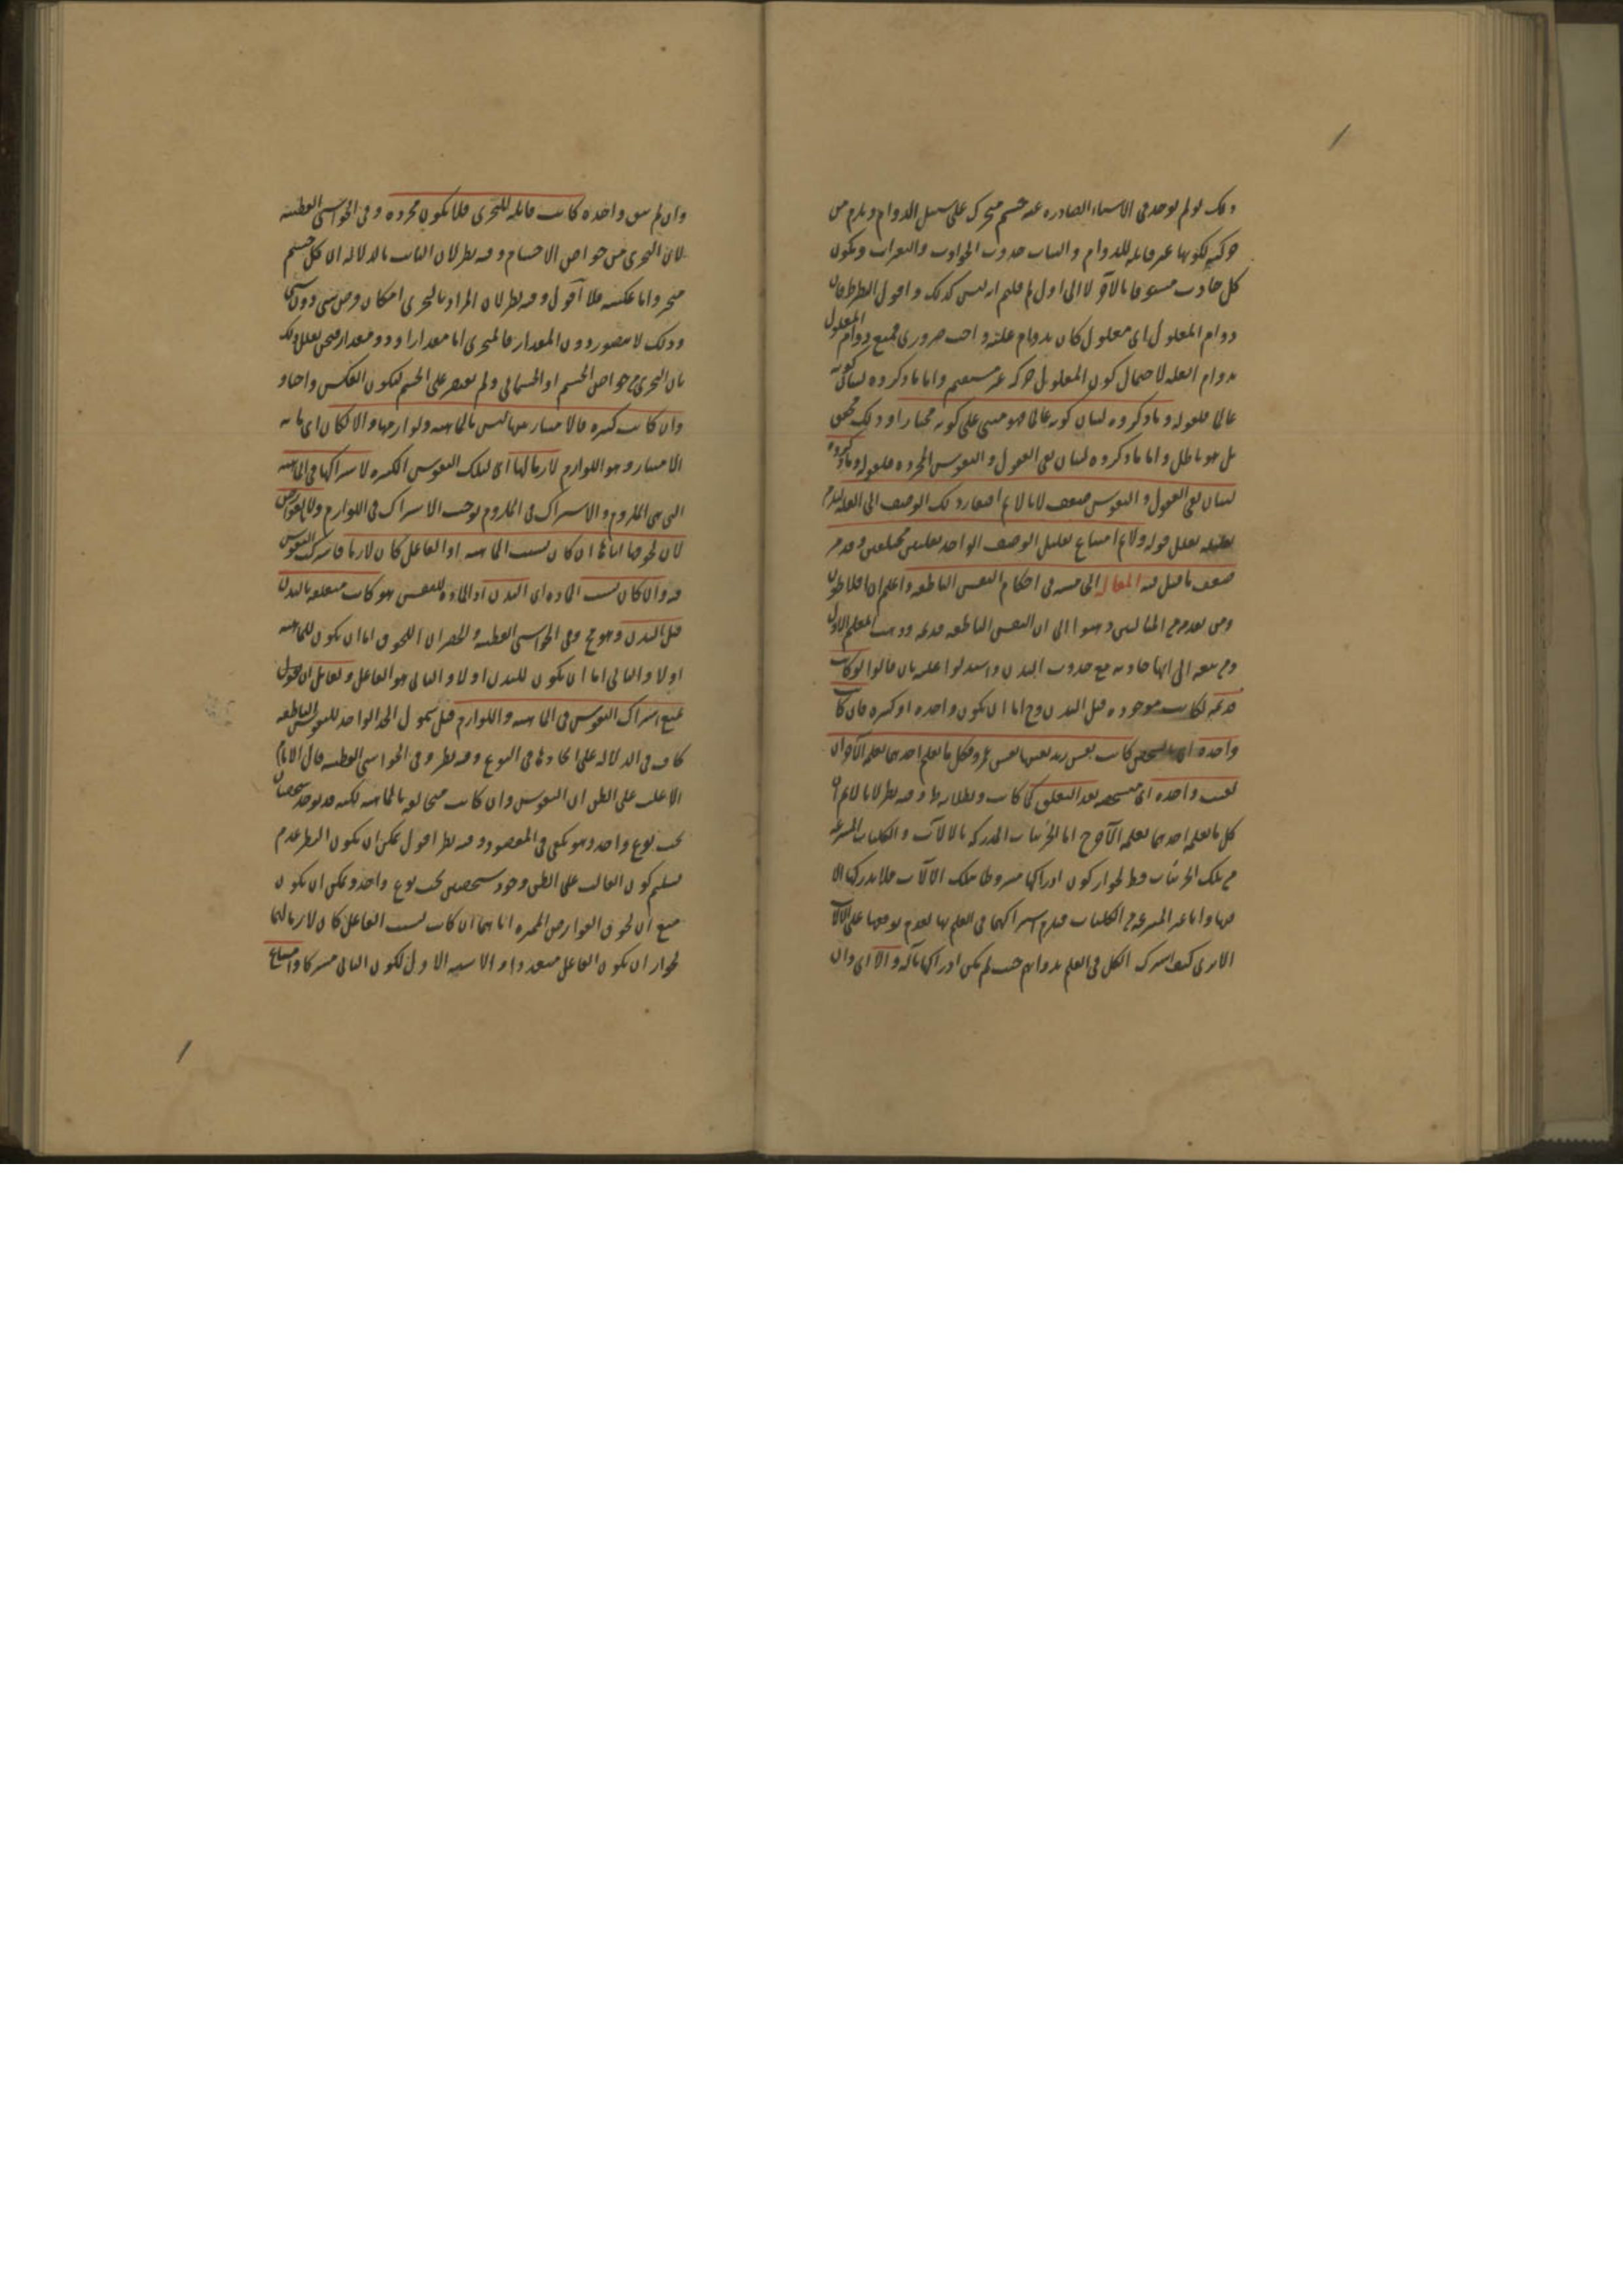 وذلك لو لم يوجد فى الاشياء الصادره عنه جسم متحرك على سبيل الدوام ويلزم من
حركته لكونها غير قابله للدوام والثبات حدوث الحوادث والتغيرات ويكون
كل حادث مسبوقا بالآخر لا الى اول لم قلتم انه ليس كذلك واقول النظر فان
دوام المعلول اى معلول كان بدوام علته واجب ضرورى فمنع دوام المعلول
بدوام العله لاحتمال كون المعلول حركه غير مستقيم واما ما ذكروه لبيان كونه
عالما فلقوله وما ذكروه لبيان كونه عالما فهو مبنى على كونه مختارا وذلك
بل هو باطل واما ما ذكروه لبيان نفى العقول والنفوس المجرده فلقوله وما ذكروه
لبيان نفى العقول والنفوس ضعيف لانا لا نم افتقار ذلك الوصف الى العله
تعليل قوله ولا نم امتناع تعليل الوصف الواحد بعلتين مختلفتين وقد مر
ضعف ما قيل فيه المقاله الخامسه فى احكام النفس الناطقه واعلم ان افلاطون
ومن تقدمه من ذهبوا الى ان النفس الناطقه قديمه وذهب المعلم الاول
ومن تبعه الى انها حادثه مع حدوث البدن واستدلوا عليه بان قالوا لو كانت
قديمه لكانت موجوده قبل البدن وح اما ان يكون واحده او كثيره فان كانت
واحده اى بالشخص كانت نفس زيد بعينها نفس عمرو فكل ما يعلم احدهما يعلم الآخر وان
بقيت واحده اى متشخصه بعد التعلق كما كانت وبطلانه ظ وفيه نظر لانا لا نم ان
كل ما يعلمه احدهما يعلمه الآخر ح اما الجزئيات المدركه بالآلات والكليات المنتزعه
من تلك الجزئيات فظ لجواز كون ادراكها مشروطا بتلك الآلات فلا يدركها الا
بها واما غير المنتزعه من الكليات فيلزم اشتراكهما فى العلم بها لعدم توقفها على الآلات
الا ترى كيف اشترك الكل فى العلم بذواتهم حيث لم يكن ادراكها بآله والا اى وان
وان لم يبق واحده كانت قابله للتجزى فلا يكون مجرده وفى الحواشى القطبيه
لان التجزى من خواص الاجسام وفيه نظر لان الثابت بالدلاله ان كل جسم
متجز واما عكسه فلا اقول وفيه نظر لان المراد بالتجزى امكان فرض شى دون شى
وذلك لا يتصور دون المقدار فالمتجزى اما مقدار او ذو مقدار
بان التجزى من خواص الجسم او الجسمانى ولم يقتصر على الجسم ليكون العكس واضحا و
وان كانت كثيره فالامتياز بينها ليس بالماهيه ولوازمها والا لكان اى ما به
الامتياز وهو اللوازم لازما لها اى لتلك النفوس الكثيره لاشتراكها فى الماهيه
التى هى الملزوم والاشتراك فى الملزوم يوجب الاشتراك فى اللوازم ولا بالعوارض
لان لحوقها اياها ان كان بسبب الماهيه او الفاعل كان لازما فاشترك النفوس
فيه وان كان بسبب الماده اى البدن اذ الماده للنفس هو كانت متعلقه بالبدن
قبل البدن وهو مح وفى الحواشى القطبيه والحصر ان اللحوق اما ان يكون للماهيه
اولا والثانى اما ان يكون للبدن اولا والثانى هو الفاعل ولقائل ان يقول
نمنع اشتراك النفوس فى الماهيه واللوازم قيل شمول الحد الواحد للنفوس الناطقه
كاف فى الدلاله على اتحادها فى النوع وفيه نظر وفى الحواشى القطبيه قال الامام
الاغلب على الظن ان النفوس وان كانت متخالفه بالماهيه لكنه قد يوجد شخصان
تحت نوع واحد وهو يكفى فى المقصود وفيه نظر اقول يمكن ان يكون النظر عدم
تسليم كون الغالب على الظن وجود شخصين تحت نوع واحد ويمكن ان يكون
منع ان لحوق العوارض المميزه اياهما ان كانت بسبب الفاعل كان لازما لهما
لجواز ان يكون الفاعل متعددا والاشبه الاول لكون الثانى مشتركا وامتناع